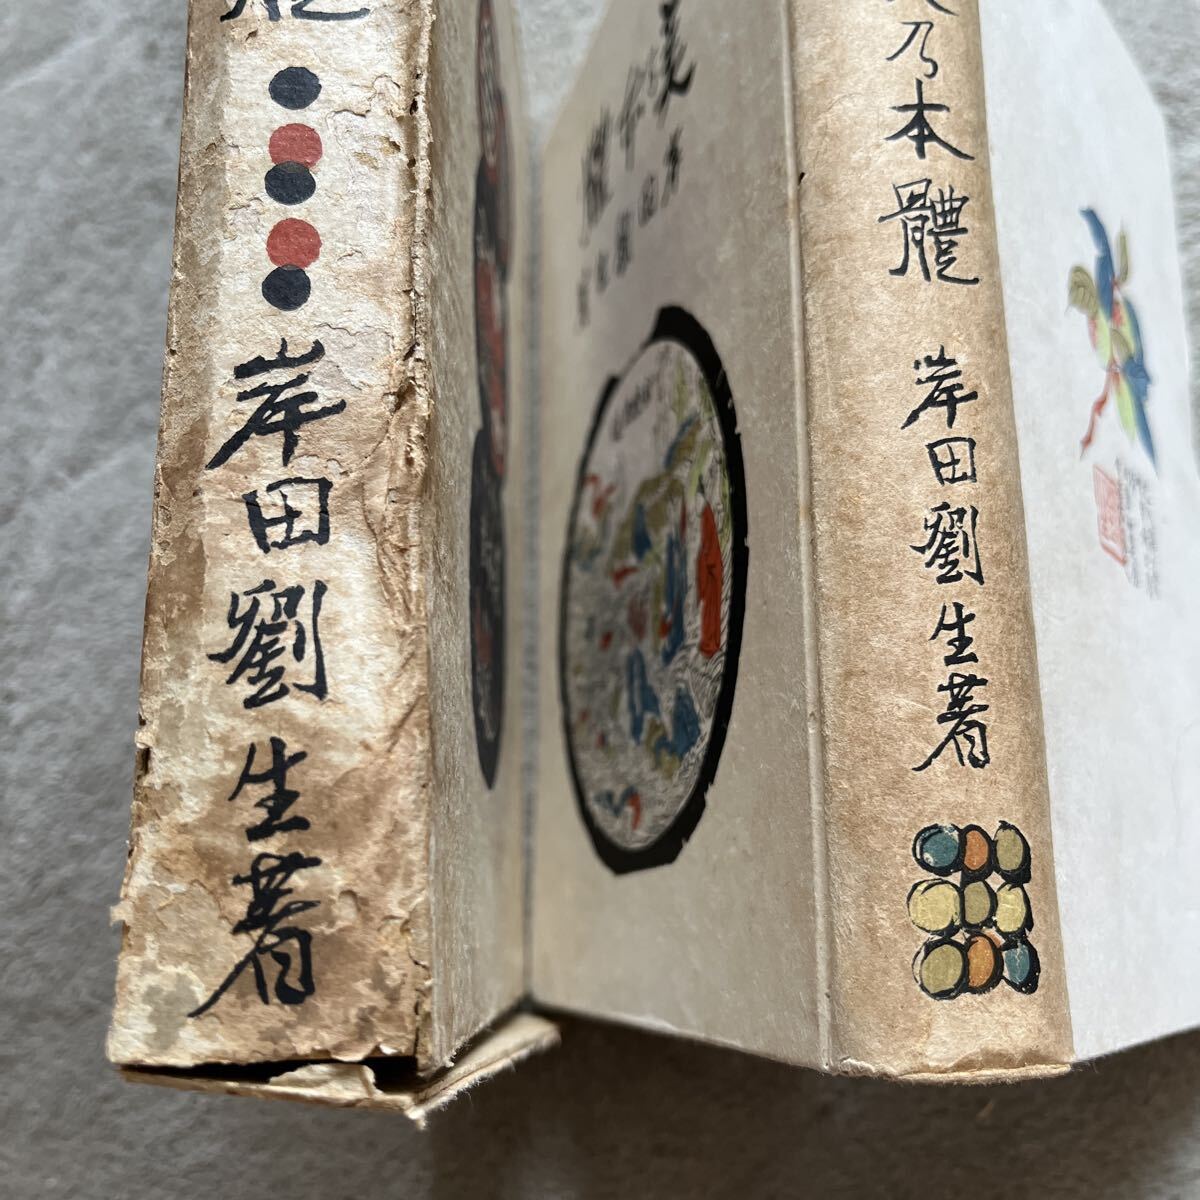 體
岸田劉生著
美乃本體
岸田劉生著
乃本體
岸田劉生著